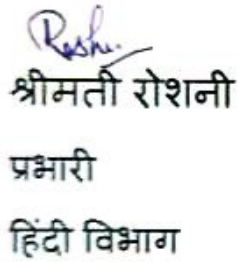 Roshni
श्रीमती रोशनी
प्रभारी
हिंदी विभाग